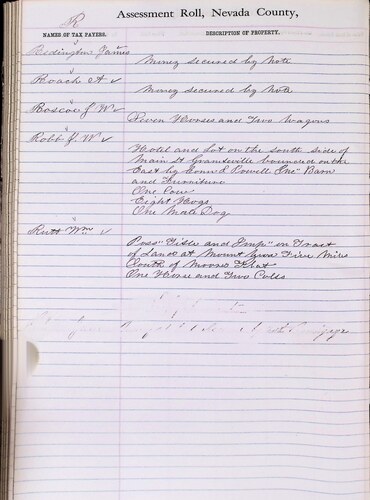 R
Assessment Roll, Nevada County,
NAMES OF TAX PAYERS.
DESCRIPTION OF PROPERTY.
Redington James
Money secured by note
Roach A
Money secured by Note
Roscoe J W
Seven Horses and Two Wagons
Robb J. W
Hotel and Lot on the south side of
Main St Graniteville bounded on the
East by Powell One Barn
and Furniture
One Cow
Eight Hogs
One Male Dog
Rutt Wm
Poss" Title and Imp" in Tract
of Land at Mount Five Miles
South of Moores Flat
One Horse and Two Colts